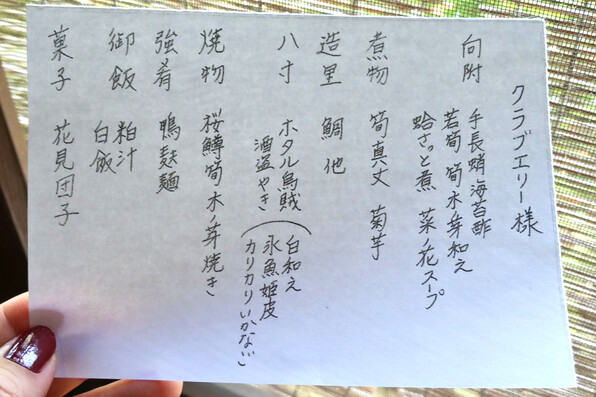 クラブエリー様
向附 手長蛸 海苔酢
若筍 筍木ノ芽和え
蛤さっと煮 菜ノ花スープ
煮物 筍真丈 菊芋
造里 鯛 他
八寸 ホタル烏賊
酒盗やき
白和え
氷魚姫皮
カリカリいかなご
焼物 桜鱒筍木ノ芽焼き
強肴 鴨 麩 麺
御飯 粕汁
白飯
菓子 花見団子